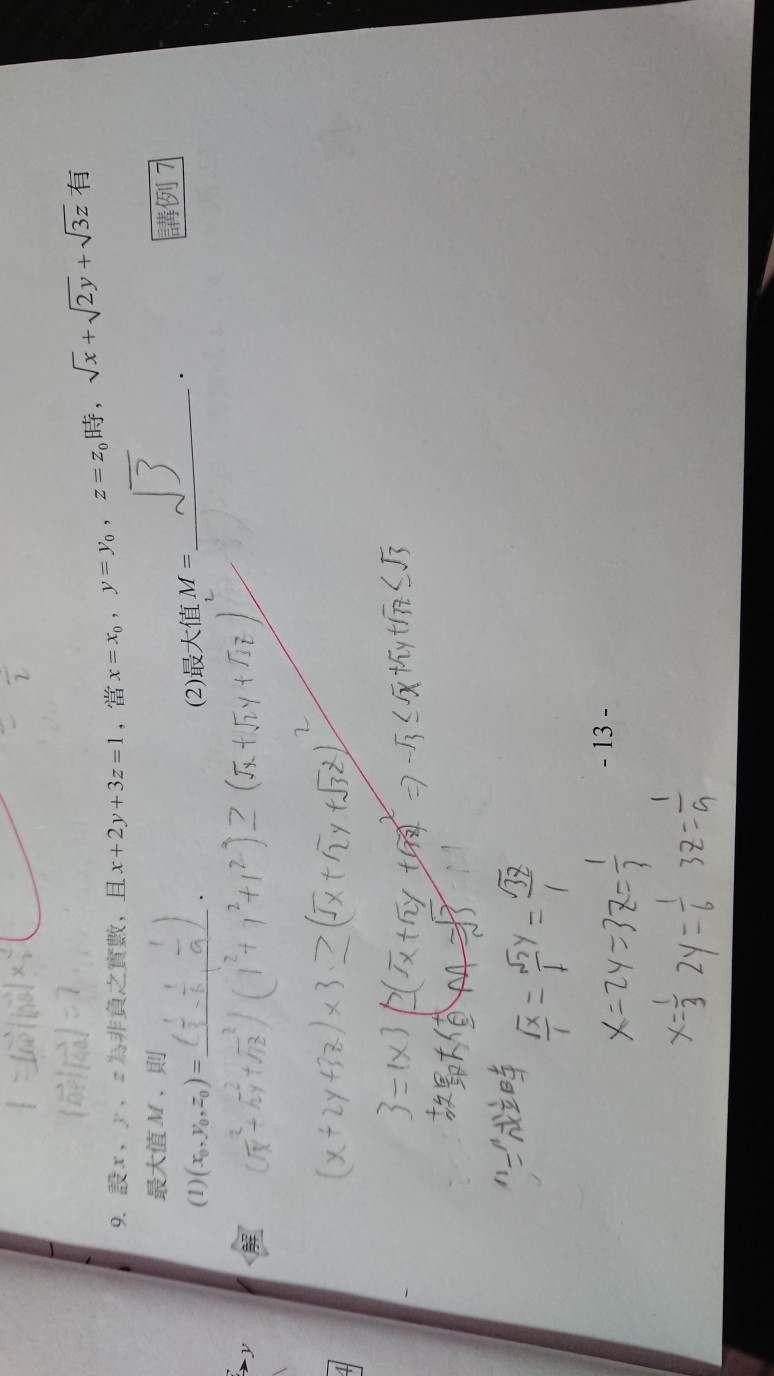 9. 設 x、y、z 為非負之實數，且 x+2y+3z=1，當 x=x₀，y=y₀，z=z₀ 時，√x+√2y+√3z 有
最大值 M，則
(1)(x₀,y₀,z₀)=(1/3、1/6、1/9). (2)最大值 M=√3.
講例 7
解
(√x²+√2y²+√3z²)(1²+1²+1²)≥(√x+√2y+√3z)²
(x+2y+3z)×3≥(√x+√2y+√3z)²
3=1×3≥(√x+√2y+√3z)² ⇒ -√3≤√x+√2y+√3z≤√3
故最大值 M=√3
"="成立時 √x/1=√2y/1=√3z/1
x=2y=3z=1/3
x=1/3 2y=1/6 3z=1/9
- 13 -
y
4